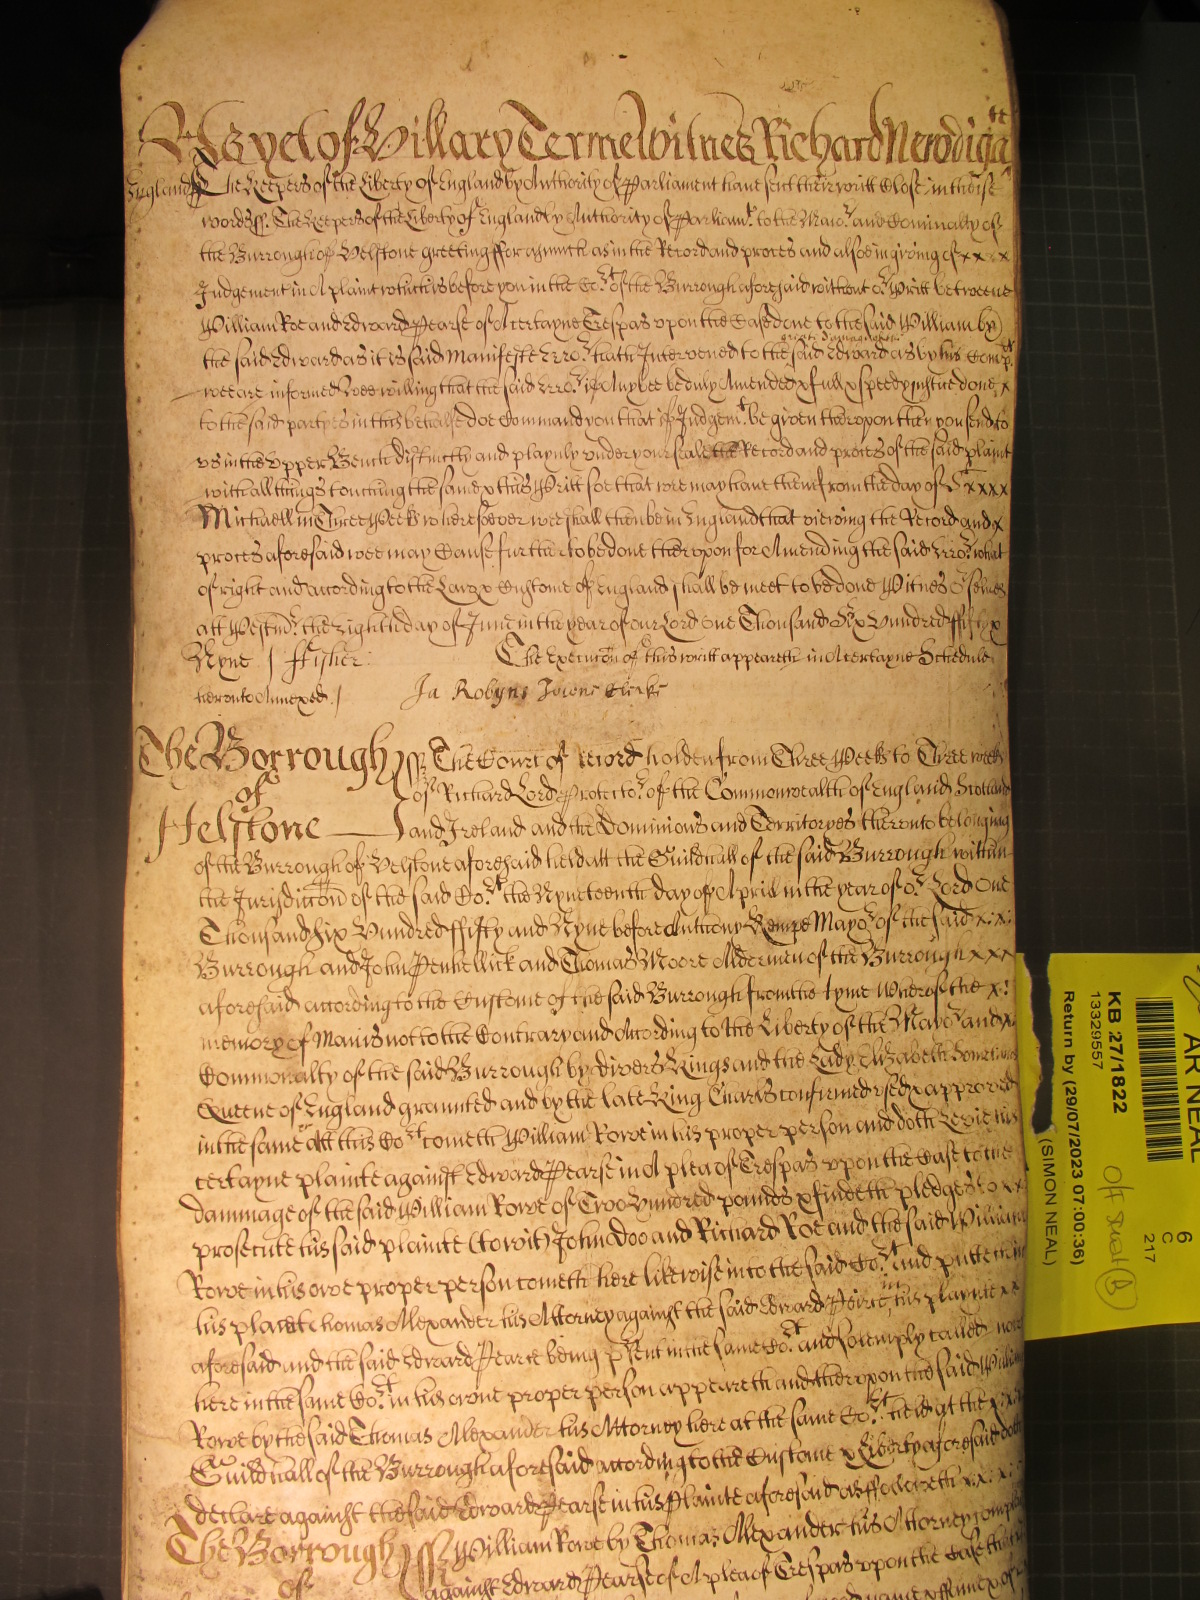 Yet of Hillary Terme Witnes Richard Newdigate
England ss The Keepers of the Liberty of England by Authority of Parliament have sent their writt Close in these
words ss. The Keepers of the Liberty of England by Authority of Parliamt. to the Maior and Cominalty of
the Burrough of Helstone greeting fforasmuch as in the Record and proces and alsoe in giving of x x x x
Judgement in A plaint which is before you in the Cort of the Burrough aforesaid without or Writt betweene
William Roe and Edward Pearse of A certayne Trespas upon the Case done to the said William by
the said Edward as it is said Manifeste Erro.r hath Intervened to the greate Damage of the said Edward as by his Compt
wee are informed Wee willing that the said Erro.r if Any bee be duly Amended x full x speedy justice done x
to the said partyes in this behalfe doe Command you that if Judgem.t be given thereupon then you send to
us in the Upper Bench distinctly and playnly under your seale the Record and proces of the said plaint
with all things touching the same x this Writt soe that wee may have them from the day of St x x x x
Michaell in Three Weeks wheresoever wee shall then be in England that viewing the Record and x
proces aforesaid wee may Cause further to be done thereupon for Amending the said Erro.r what
of right and according to the Law x Custome of England shall be meet to be done Witnes or selves
att Westmr. the Eighth day of June in the year of our Lord One Thousand Six Hundred ffifty x
Nyne / ffisher. The Execucon of this writt appeareth in A certayne Schedule
hereunto Annexed / Ja Robyns Towne Clerke
The Borrough of Helstone ss The Court of record holden from Three Weeks to Three weeks
of Richard Lord Protector of the Commonwealth of England Scotland
and Ireland and the Dominions and Territoryes thereunto belonging
of the Burrough of Helstone aforesaid held att the Guildhall of the said Burrough within
the Jurisdiction of the said Cort the Nyneteenth day of Aprill in the year of or Lord One
Thousand Six Hundred ffifty and Nyne before Anthony Kempe Mayor of the said x x x
Burrough and John Penhellick and Thomas Moore Aldermen of the Burrough x x x
aforesaid according to the Custome of the said Burrough from the tyme Whereof the x
memory of Man is not to the Contrary and According to the Liberty of the Mayor and x
Commonalty of the said Burrough by divers Kings and the Lady Elizabeth Sometimes
Queene of England graunted and by the late King Charls confirmed used x approved
in the same Att this Cort cometh William Rowe in his proper person and doth Levie his
certayne plainte against Edward Pearse in A plea of Trespas upon the Case to the
dammage of the said William Rowe of Two Hundred pounds x findeth pledges to x x
prosecute his said plainte (to wit) John Doo and Richard Roe and the said William
Rowe in his owne proper person cometh here likewise into the said Cort And putteth in
his place Thomas Alexander his Attorney against the said Edward Peirce in his playnte x x
aforesaid and the said Edward Pearce being present in the same Cort and solemply called now
here in the same Cort in his owne proper person appeareth and thereupon the said William
Rowe by the said Thomas Alexander his Attorney here at the same Cort held at the
Guildhall of the Burrough aforesaid according to the Custome x Liberty aforesaid doth
declare against the said Edward Pearse in his Plainte aforesaid as ffolloweth x x x
The Borrough of ss William Rowe by Thomas Alexander his Attorney
against Edward Pearse of A plea of Trespas upon the Case
AR NEAL
6
C
217
KB 27/1822
13329557
Return by (29/07/2023 07:00:36)
(SIMON NEAL)